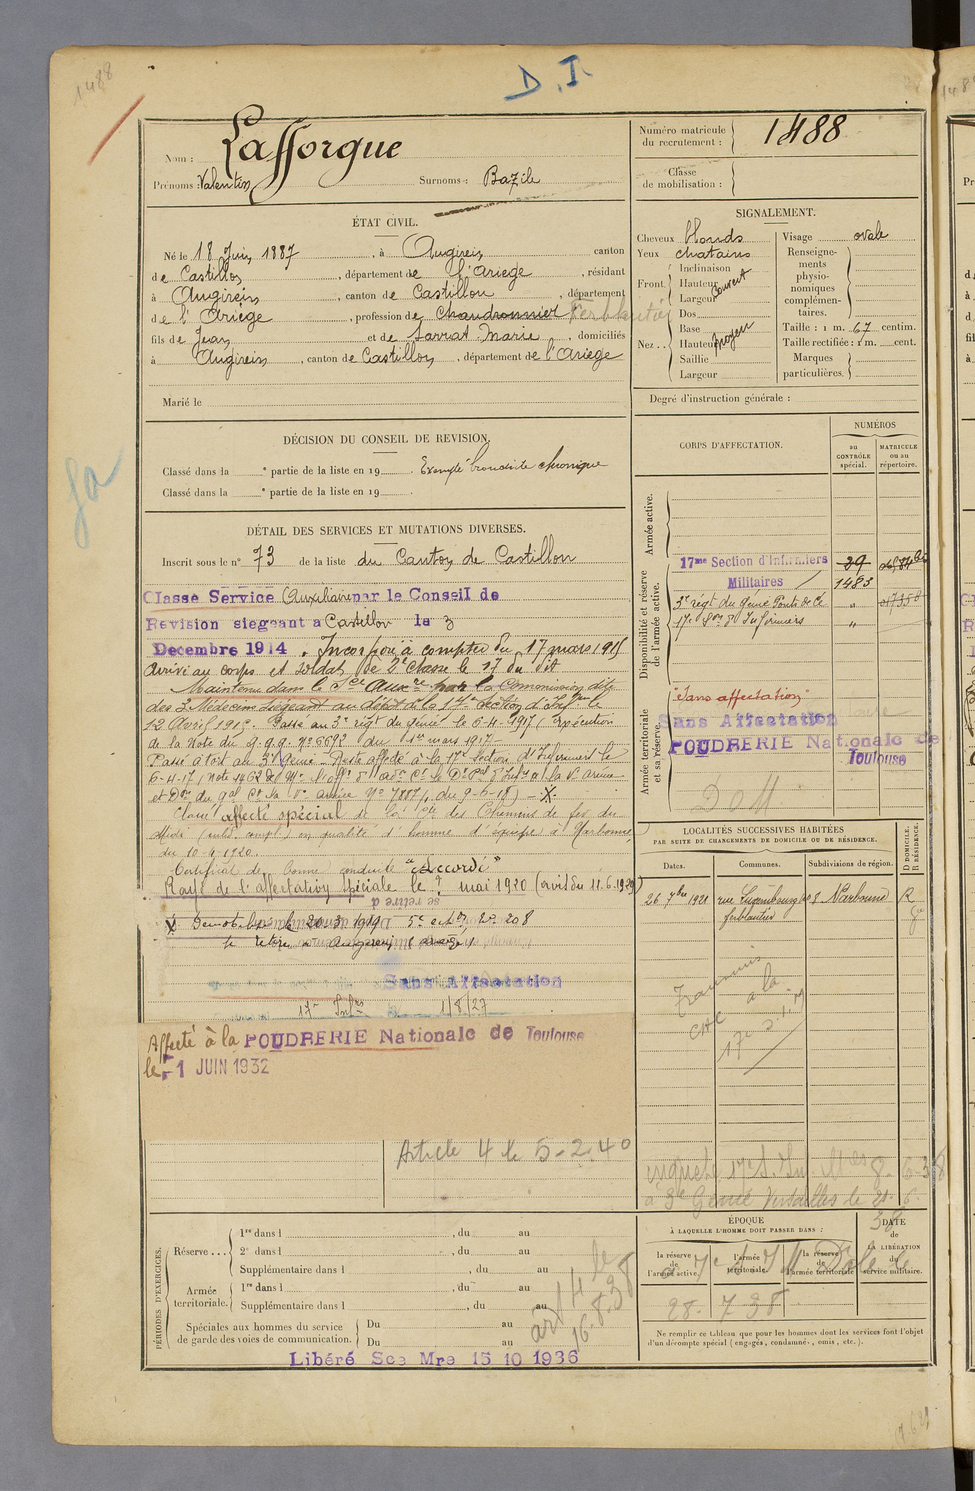 1488
D. I.
Nom : Lafforgue
Prénoms : Valentin Surnoms : Bazile
Numéro matricule du recrutement : 1488
Classe de mobilisation :
ÉTAT CIVIL.
Né le 18 Juin 1887, à Augirein canton
de Castillon, département de l'Ariège, résidant
à Augirein, canton de Castillon, département
de l'Ariège, profession de Chaudronnier Ferblantier
fils de Jean et de Sarrat Marie, domiciliés
à Augirein, canton de Castillon, département de l'Ariège
Marié le
SIGNALEMENT.
Cheveux blonds
Yeux chatains
Front. Inclinaison
Hauteur
Largeur
couvert
Nez. Dos
Base
Hauteur
Saillie
Largeur
moyen
Visage ovale
Renseignements physionomiques complémentaires.
Taille : 1 m. 67 centim.
Taille rectifiée : 1 m. cent.
Marques particulières.
Degré d'instruction générale :
DÉCISION DU CONSEIL DE REVISION.
Classé dans la e partie de la liste en 19 . Exempté bronchite chronique
Classé dans la e partie de la liste en 19 .
DÉTAIL DES SERVICES ET MUTATIONS DIVERSES.
Inscrit sous le n° 73 de la liste du Canton de Castillon
Classé Service Auxiliaire par le Conseil de
Revision siegeant a Castillon le 3
Decembre 1914. Incorporé à compter du 17 mars 1915
Arrivé au corps et soldat de 2e Classe le 17 du dit
Maintenu dans le Sce Auxre par la Commission dite
des 3 Médecins siégeant au dépôt de la 17e Section d'Infirm le
12 Avril 1915. Passé au 3e régt du génie le 6-4-1917 (Exécution
de la Note du G.Q.G. N° 6692 du 1er mars 1917 -
Passé à tort au 3e Génie - Reste affecté à la 17e Section d'Infirmiers le
6-4-17
du 9-6-18) - X.
Classé affecté spécial de la Cie des Chemins de fer du
Midi en qualité d'homme d'équipe à Narbonne
du 10-4-1920.
Certificat de bonne conduite "Accordé"
Rayé de l'affectation spéciale le ? mai 1920 (avis du 11.6.1920)
se retire à
X Demobilisé le 20-3-1919 5e echon, No 208
se retire à Augirein
Sans Affectation
17e Infres le 1/8/27
Affecté à la POUDRERIE Nationale de Toulouse
le - 1 JUIN 1932
Article 4 le 5-2-40
CORPS D'AFFECTATION.
NUMÉROS
au CONTRÔLE spécial.
MATRICULE ou au répertoire.
Armée active.
Disponibilité et réserve de l'armée active.
17me Section d'Infirmiers 29
Militaires 1483
3e régt du Génie Ponts de Cé "
17e Son d'Infirmiers "
Armée territoriale et sa réserve.
"Sans affectation"
Sans Affectation
POUDRERIE Nationale de
Toulouse
LOCALITÉS SUCCESSIVES HABITÉES
PAR SUITE DE CHANGEMENTS DE DOMICILE OU DE RÉSIDENCE.
Dates. Communes. Subdivisions de région. D DOMICILE. R RÉSIDENCE.
26 7bre 1921 rue Luxembourg Narbonne R
ferblantier
Transmis
à la
17e
enquête 17e S. Inf. Mres 8-6-38
à 3e Génie Versailles le
ÉPOQUE
À LAQUELLE L'HOMME DOIT PASSER DANS :
la réserve de l'armée active.
l'armée territoriale.
la réserve de l'armée territoriale.
DATE de LA LIBÉRATION du service militaire.
28-7-38
Ne remplir ce tableau que pour les hommes dont les services font l'objet
d'un décompte spécial (engagés, condamnés, omis, etc.).
PÉRIODES D'EXERCICES.
Réserve... 1re dans l , du au
2e dans l , du au
Supplémentaire dans l , du au
Armée territoriale. 1re dans l , du au
Supplémentaire dans l , du au
Spéciales aux hommes du service
de garde des voies de communication. Du au
Du au
art 4 le
16.8.38
Libéré Sce Mre 15 10 1936